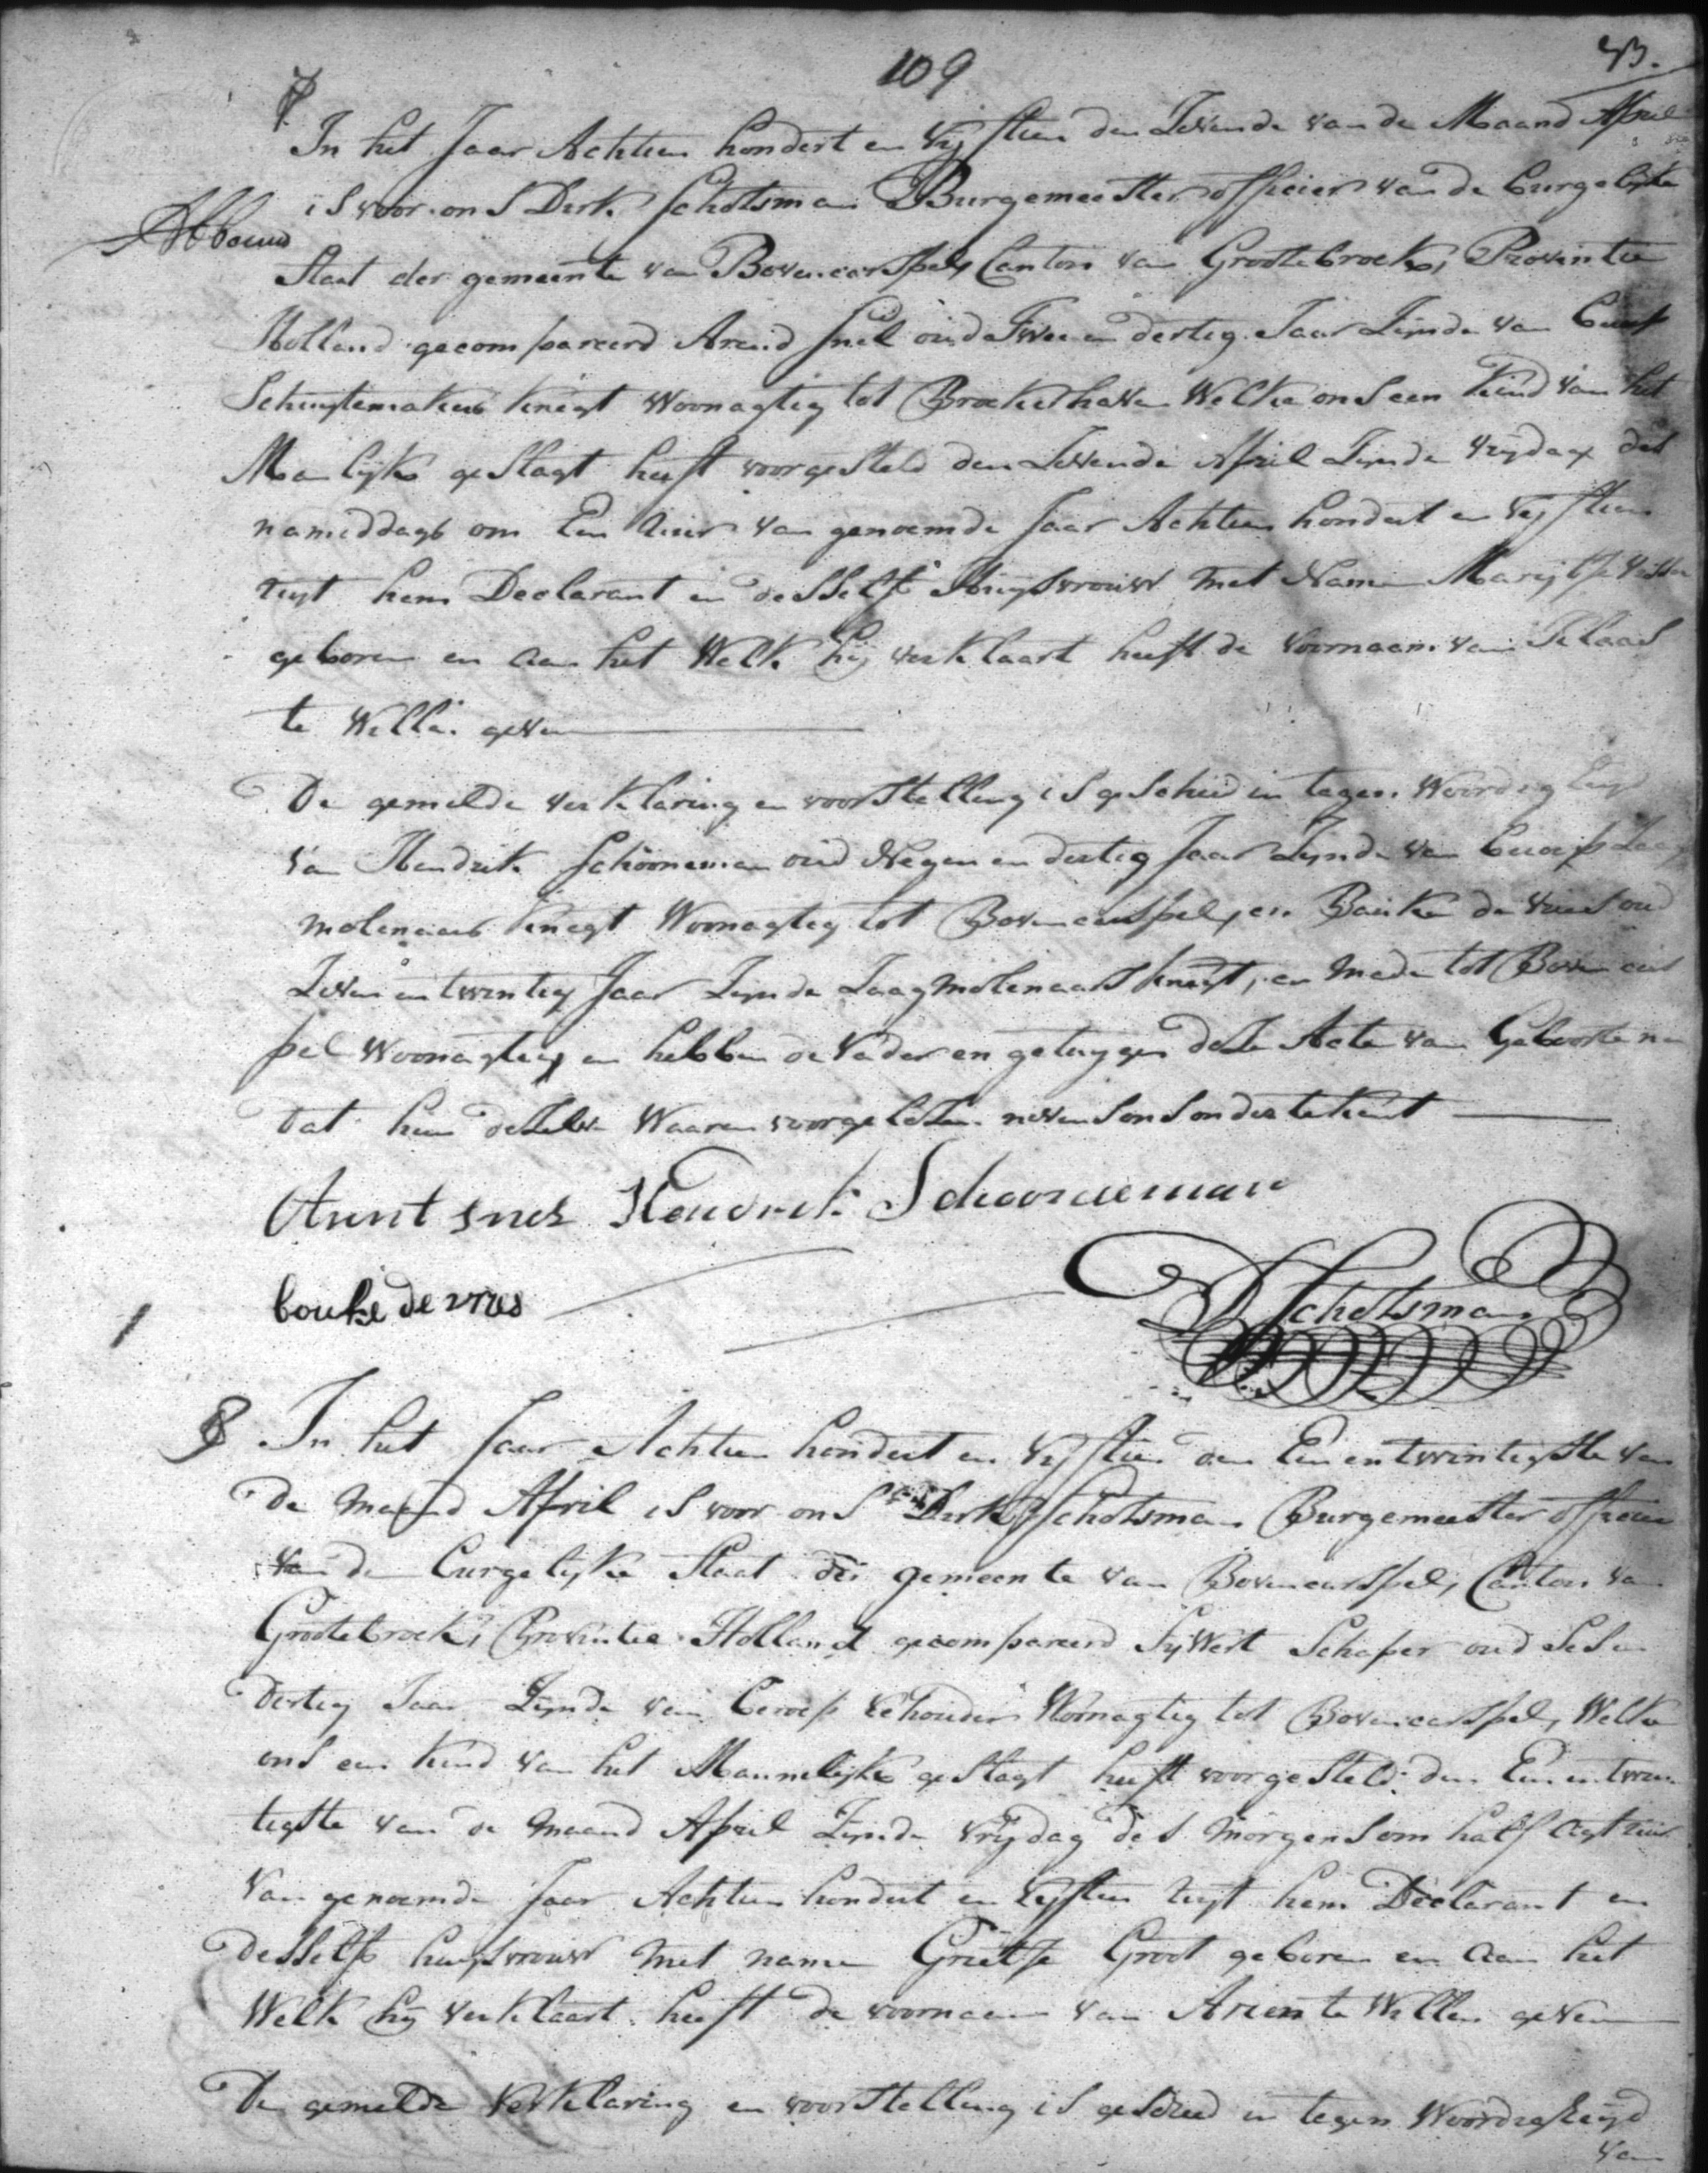 109
7
In het Jaar Achtien hondert en Vijftien den Zevende van de Maand April
is voor ons Dirk Schotsman Burgemeester officier van de burgelijke
Staat der gemeente van Bovencarspel, Canton van Grootebroek, Provintie
Holland gecompareerd Arend Snel oud Twee en dertig Jaar Zijnde van
Schuytemakers knegt Woonagtig tot Broekerhaven Welke ons een kind van het
Manlijke geslagt heeft voorgesteld den Zevende April Zijnde Vrijdag des
namiddags om Een Uur van genoemde Jaar Achtien hondert en Vijftien
uyt hem Declarant en desselfs Huysvrouw met Namen Marijtje
geboren en aan het Welk hij verklaart heeft de voornaam van Klaas
te Willen geven
De gemelde verklaring en voorstelling is geschied in tegen Woordigheyd
van Hendrik Schooneman oud Negen en dertig Jaar Zijnde van beroep Zaag
molenaars knegt Woonagtig tot Bovencarspel, en Bauke de Vries oud
Zeven en twintig Jaar Zijnde Zaagmolenaars knegt, en mede tot Bovencars
pel Woonagtig en hebben de Vader en getuygen deze Acte van Geboorte na
dat hun dezelve Waaren voorgelezen nevens ons ondertekent
Arent snel Hendrik Schooneman
bouke de vries
D Schotsman
8 In het Jaar Achtien hondert en Vijftien den Een en twintigste van
de maand April is voor ons Dirk Schotsman Burgemeester officier
van de burgelijke Staat der gemeente van Bovencarspel, Canton van
Grootebroek, Provintie Holland gecompareerd Sijwert Schaper oud Ses en
dertig Jaar Zijnde van beroep Vehouder Woonagtig tot Bovencarspel, Welke
ons een kind van het Mannelijke geslagt heeft voorgesteld den Een en twin
tigste van de maand April Zijnde Vrijdag des morgens om half agt uur
van genoemde Jaar Achtien hondert en Vijftien uyt hem Declarant en
desselfs huysvrouw met namen Grietje Groot geboren en aan het
Welk hij verklaart heeft de voornaam van Arien te Willen geven
De gemelde Verklaring en voorstelling is geschied in tegen Woordigheijd
van